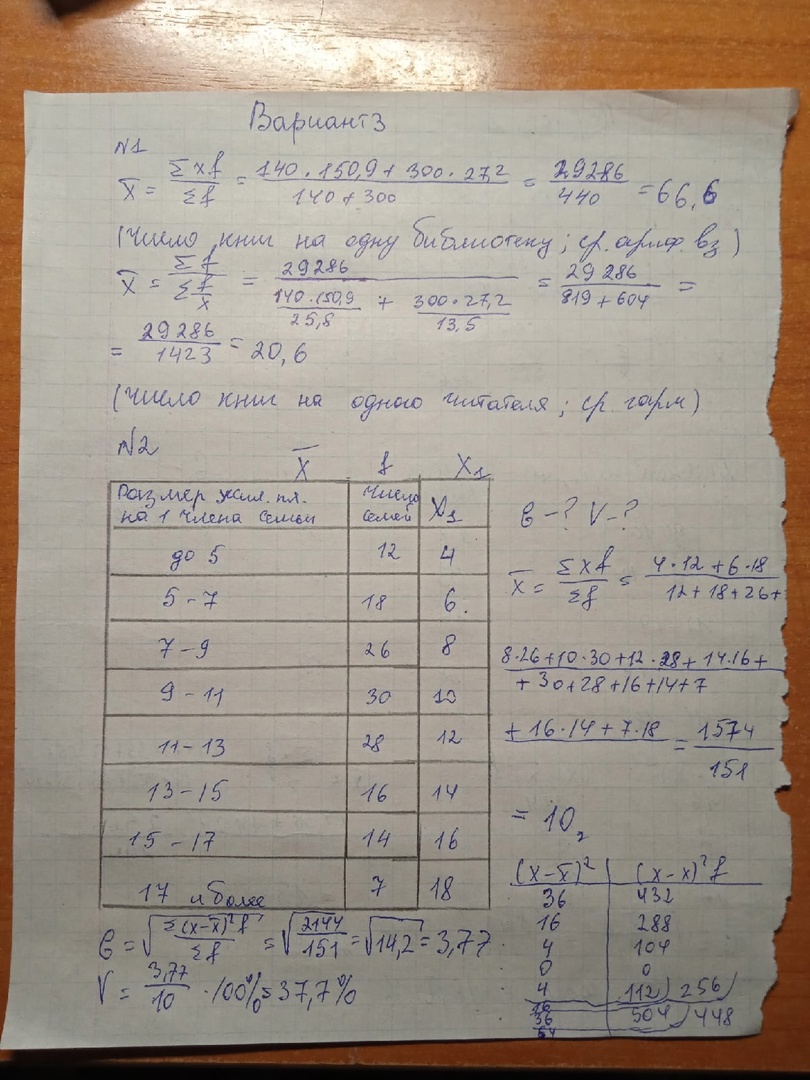 Вариант 3
N1
X̄ = Σxf / Σf = (140 · 150,9 + 300 · 27,2) / (140 + 300) = 29286 / 440 = 66,6
(Число книг на одну библиотеку; ср. ариф. вз)
X̄ = Σf / Σ(f/x) = 29286 / (140 · 150,9 / 25,8 + 300 · 27,2 / 13,5) = 29286 / (819 + 604) =
= 29286 / 1423 = 20,6
(Число книг на одного читателя; ср. гарм)
N2
X̄ f X₁
Размер жил. пл. на 1 члена семьи | Число семей | X₁
до 5 | 12 | 4
5 - 7 | 18 | 6.
7 - 9 | 26 | 8
9 - 11 | 30 | 10
11 - 13 | 28 | 12
13 - 15 | 16 | 14
15 - 17 | 14 | 16
17 и более | 7 | 18
б - ? V - ?
X̄ = Σxf / Σf = (4 · 12 + 6 · 18 / 12 + 18 + 26 +
8 · 26 + 10 · 30 + 12 · 28 + 14 · 16 + / + 30 + 28 + 16 + 14 + 7
+ 16 · 14 + 7 · 18 = 1574 / 151
= 10,
(x-x̄)² | (x-x)² f
36 | 432
16 | 288
4 | 104
0 | 0
4 | 112 ) 256
16
36 | 504 ) 448
64
б = √(Σ(x-x̄)² f / Σf) = √(2144 / 151) = √14,2 = 3,77
V = 3,77 / 10 · 100% = 37,7%